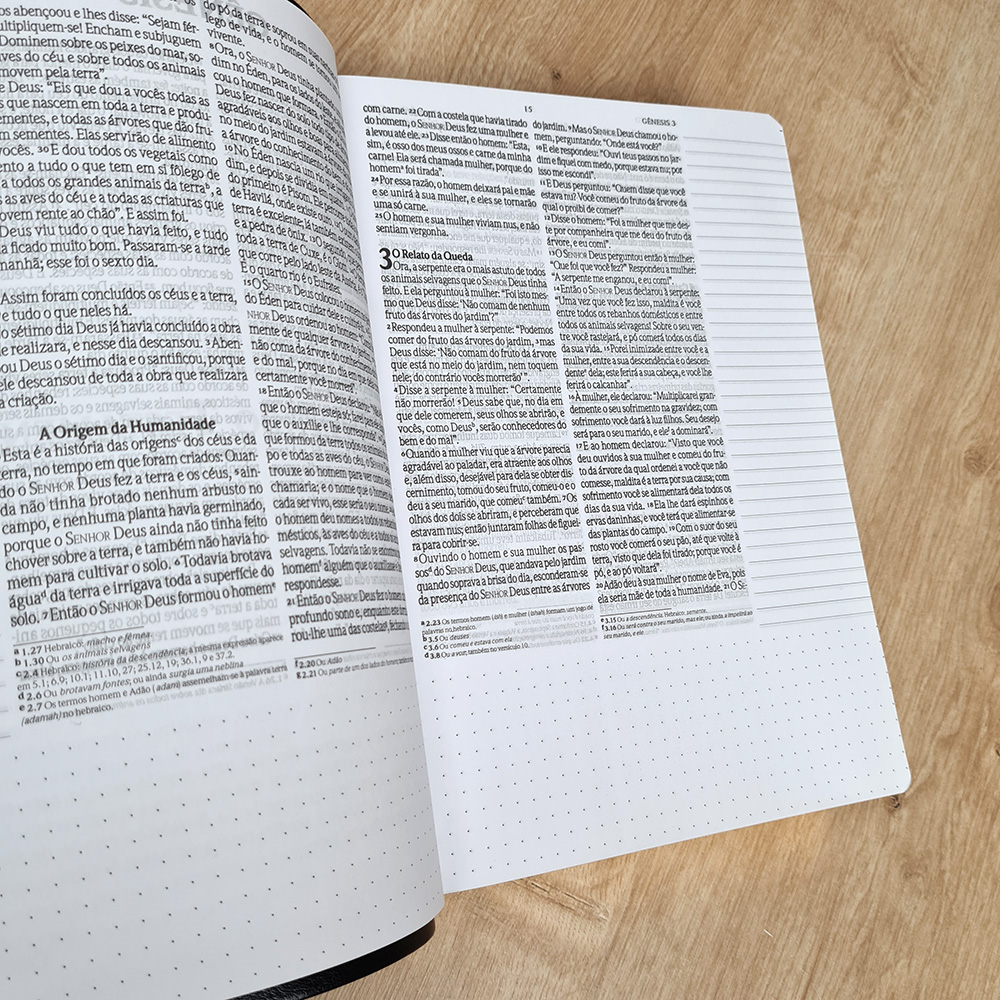 os abençoou e lhes disse: "Sejam fér-
ultipliquem-se! Encham e subjuguem
Dominem sobre os peixes do mar, so-
ves do céu e sobre todos os animais
movem pela terra".
e Deus: "Eis que dou a vocês todas as
s que nascem em toda a terra e produ-
ementes, e todas as árvores que dão fru-
m sementes. Elas servirão de alimento
vocês. 30 E dou todos os vegetais como
ento a tudo o que tem em si fôlego de
a todos os grandes animais da terraᵇ, a
s as aves do céu e a todas as criaturas que
ovem rente ao chão". E assim foi.
Deus viu tudo o que havia feito, e tudo
a ficado muito bom. Passaram-se a tarde
manhã; esse foi o sexto dia.
Assim foram concluídos os céus e a terra,
e tudo o que neles há.
o sétimo dia Deus já havia concluído a obra
e realizara, e nesse dia descansou. 3 Aben-
ou Deus o sétimo dia e o santificou, porque
ele descansou de toda a obra que realizara
a criação.
A Origem da Humanidade
Esta é a história das origensᶜ dos céus e da
terra, no tempo em que foram criados: Quan-
do o SENHOR Deus fez a terra e os céus, 5 ain-
da não tinha brotado nenhum arbusto no
campo, e nenhuma planta havia germinado,
porque o SENHOR Deus ainda não tinha feito
chover sobre a terra, e também não havia ho-
mem para cultivar o solo. 6 Todavia brotava
águaᵈ da terra e irrigava toda a superfície do
solo. 7 Então o SENHOR Deus formou o homemᵉ
a 1.27 Hebraico: macho e fêmea.
b 1.30 Ou os animais selvagens
c 2.4 Hebraico: história da descendência; a mesma expressão aparece
em 5.1; 6.9; 10.1; 11.10, 27; 25.12, 19; 36.1, 9 e 37.2.
d 2.6 Ou brotavam fontes; ou ainda surgia uma neblina
e 2.7 Os termos homem e Adão (adam) assemelham-se à palavra terra
(adamah) no hebraico.
do pó da terra e soprou em suas
lego de vida, e o homem se tornou
vivente.
8 Ora, o SENHOR Deus tinha plantado
dim no Éden, para os lados do
cou o homem que formara.
Deus fez nascer do solo todo
agradáveis aos olhos e boas para
no meio do jardim estavam a
a árvore do conhecimento do
10 No Éden nascia um rio que
dim, e depois se dividia em
do primeiro é Pisom. Ele percorre
de Havilá, onde existe ouro.
terra é excelente; lá também existem
e a pedra de ônix. 13 O segundo
toda a terra de Cuxe. 14 O
que corre pelo lado leste da
E o quarto rio é o Eufrates.
15 O SENHOR Deus colocou o homem
do Éden para cuidar dele e
SENHOR Deus ordenou ao homem:
mente de qualquer árvore do jardim,
não coma da árvore do conhecimento
e do mal, porque no dia em que
certamente você morrerá".
18 Então o SENHOR Deus declarou:
que o homem esteja só; farei
que o auxilie e lhe corresponda".
que formou da terra todos os
po e todas as aves do céu, o SENHOR
trouxe ao homem para ver como
chamaria; e o nome que o homem
cada ser vivo, esse seria o seu nome.
o homem deu nomes a todos os
mésticos, às aves do céu e a todos
selvagens. Todavia não se encontrou
homemᶠ alguém que o auxiliasse e
respondesse.
21 Então o SENHOR Deus fez o homem
profundo sono e, enquanto este
rou-lhe uma das costelasᵍ, fechando
f 2.20 Ou Adão
g 2.21 Ou parte de um dos lados do homem
15
GÊNESIS 3
com carne. 22 Com a costela que havia tirado
do homem, o SENHOR Deus fez uma mulher e
a levou até ele. 23 Disse então o homem: "Esta,
sim, é osso dos meus ossos e carne da minha
carne! Ela será chamada mulher, porque do
homemᵃ foi tirada".
24 Por essa razão, o homem deixará pai e mãe
e se unirá à sua mulher, e eles se tornarão
uma só carne.
25 O homem e sua mulher viviam nus, e não
sentiam vergonha.
3 O Relato da Queda
Ora, a serpente era o mais astuto de todos
os animais selvagens que o SENHOR Deus tinha
feito. E ela perguntou à mulher: "Foi isto mes-
mo que Deus disse: 'Não comam de nenhum
fruto das árvores do jardim'?"
2 Respondeu a mulher à serpente: "Podemos
comer do fruto das árvores do jardim, 3 mas
Deus disse: 'Não comam do fruto da árvore
que está no meio do jardim, nem toquem
nele; do contrário vocês morrerão' ".
4 Disse a serpente à mulher: "Certamente
não morrerão! 5 Deus sabe que, no dia em
que dele comerem, seus olhos se abrirão, e
vocês, como Deusᵇ, serão conhecedores do
bem e do mal".
6 Quando a mulher viu que a árvore parecia
agradável ao paladar, era atraente aos olhos
e, além disso, desejável para dela se obter dis-
cernimento, tomou do seu fruto, comeu-o e o
deu a seu marido, que comeuᶜ também. 7 Os
olhos dos dois se abriram, e perceberam que
estavam nus; então juntaram folhas de figuei-
ra para cobrir-se.
8 Ouvindo o homem e sua mulher os pas-
sosᵈ do SENHOR Deus, que andava pelo jardim
quando soprava a brisa do dia, esconderam-se
da presença do SENHOR Deus entre as árvores
a 2.23 Os termos homem (ish) e mulher (ishah) formam um jogo de
palavras no hebraico.
b 3.5 Ou deuses
c 3.6 Ou comeu e estava com ela
d 3.8 Ou a voz; também no versículo 10.
do jardim. 9 Mas o SENHOR Deus chamou o ho-
mem, perguntando: "Onde está você?"
10 E ele respondeu: "Ouvi teus passos no jar-
dim e fiquei com medo, porque estava nu; por
isso me escondi".
11 E Deus perguntou: "Quem disse que você
estava nu? Você comeu do fruto da árvore da
qual o proibi de comer?"
12 Disse o homem: "Foi a mulher que me des-
te por companheira que me deu do fruto da
árvore, e eu comi".
13 O SENHOR Deus perguntou então à mulher:
"Que foi que você fez?" Respondeu a mulher:
"A serpente me enganou, e eu comi".
14 Então o SENHOR Deus declarou à serpente:
"Uma vez que você fez isso, maldita é você
entre todos os rebanhos domésticos e entre
todos os animais selvagens! Sobre o seu ven-
tre você rastejará, e pó comerá todos os dias
da sua vida. 15 Porei inimizade entre você e a
mulher, entre a sua descendência e o descen-
denteᵉ dela; este ferirá a sua cabeça, e você lhe
ferirá o calcanhar".
16 À mulher, ele declarou: "Multiplicarei gran-
demente o seu sofrimento na gravidez; com
sofrimento você dará à luz filhos. Seu desejo
será para o seu marido, e eleᶠ a dominará".
17 E ao homem declarou: "Visto que você
deu ouvidos à sua mulher e comeu do fru-
to da árvore da qual ordenei a você que não
comesse, maldita é a terra por sua causa; com
sofrimento você se alimentará dela todos os
dias da sua vida. 18 Ela lhe dará espinhos e
ervas daninhas, e você terá que alimentar-se
das plantas do campo. 19 Com o suor do seu
rosto você comerá o seu pão, até que volte à
terra, visto que dela foi tirado; porque você é
pó, e ao pó voltará".
20 Adão deu à sua mulher o nome de Eva, pois
ela seria mãe de toda a humanidade. 21 O SE-
e 3.15 Ou a descendência. Hebraico: semente.
f 3.16 Ou será contra o seu marido, mas ele; ou ainda, a impelirá ao
seu marido, e ele